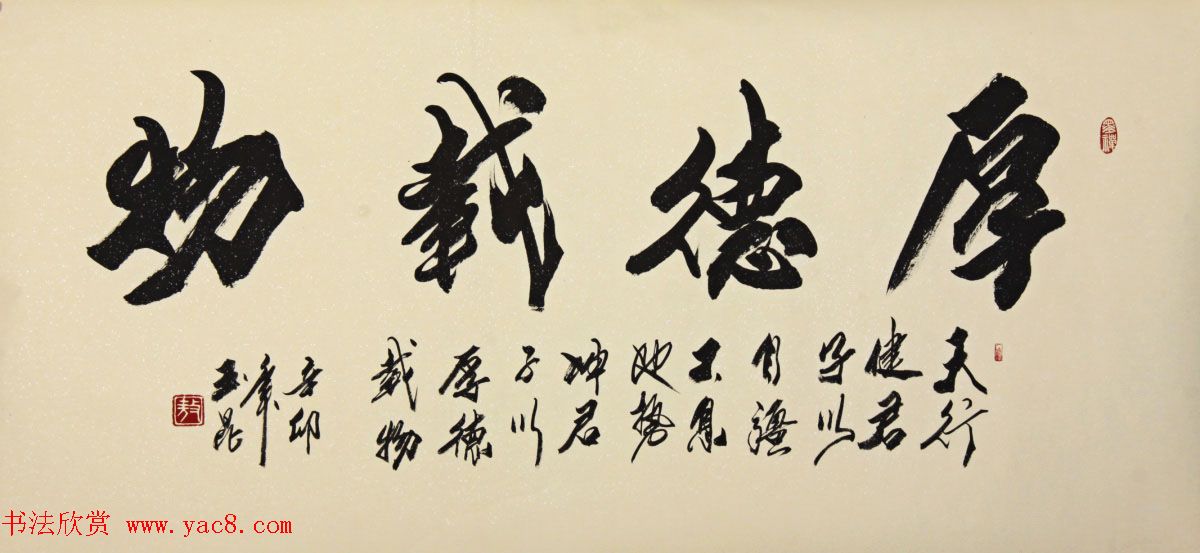 厚德载物
天行
健君
子以
自强
不息
地势
坤君
子以
厚德
载物
辛卯
年
玉昆
书法欣赏 www.yac8.com